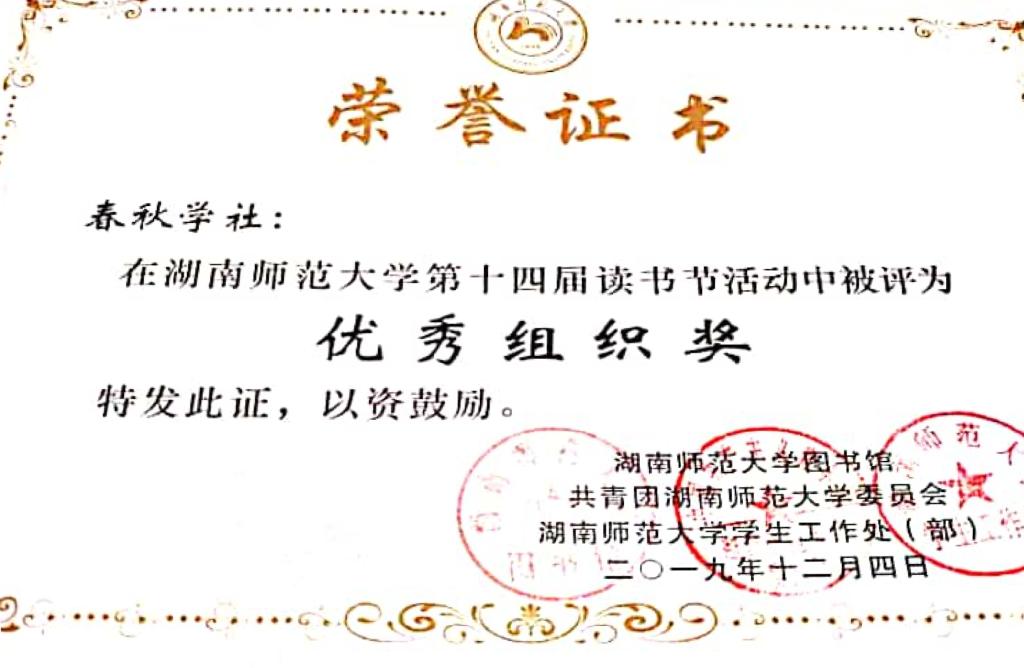 荣誉证书
春秋学社：
在湖南师范大学第十四届读书节活动中被评为
优秀组织奖
特发此证，以资鼓励。
湖南师范大学图书馆
共青团湖南师范大学委员会
湖南师范大学学生工作处（部）
二〇一九年十二月四日
师范